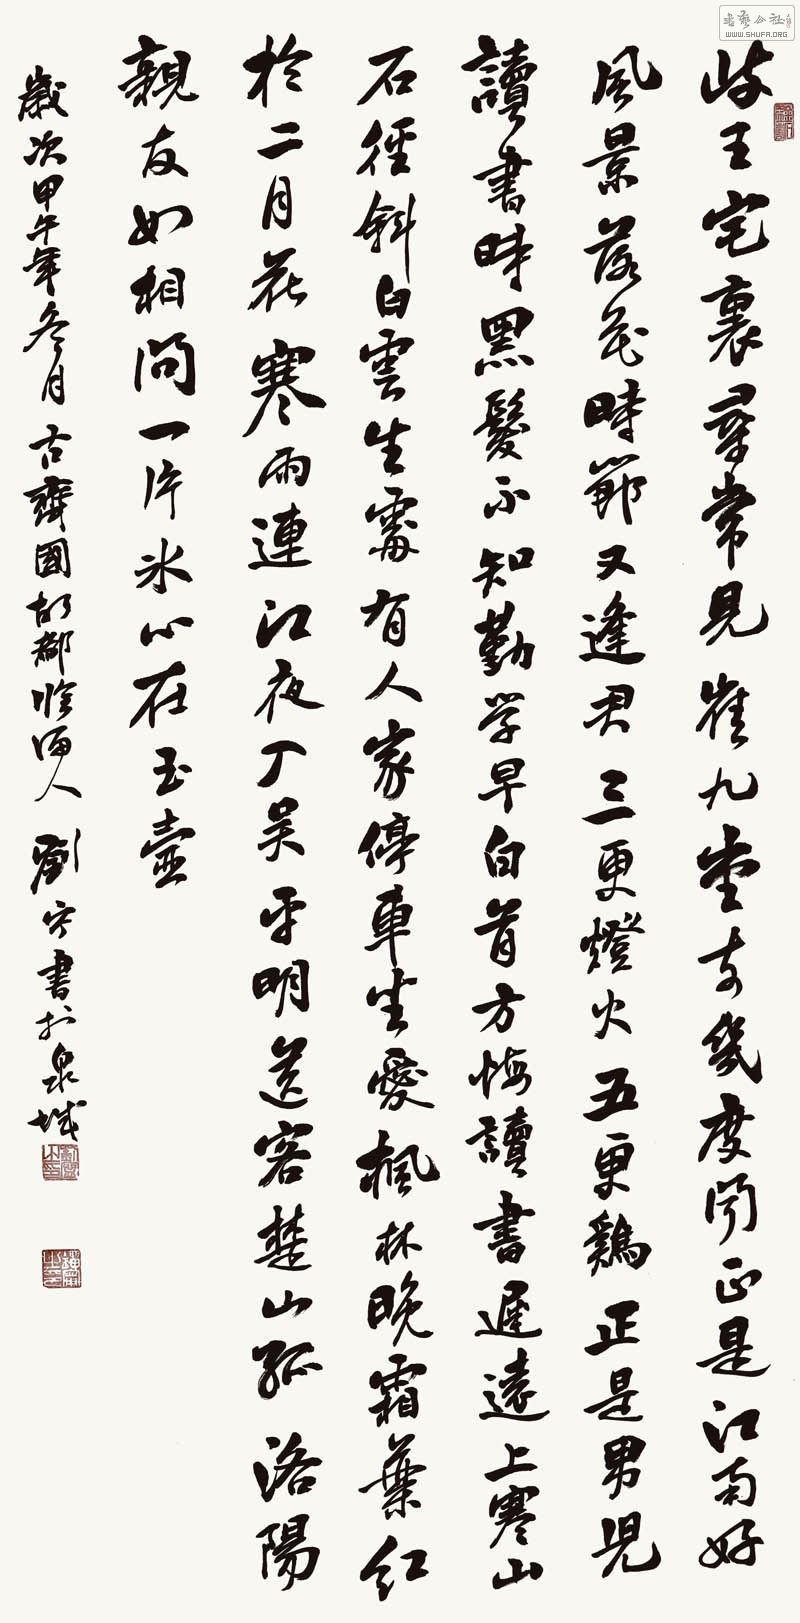 岐王宅裏尋常見崔九堂前幾度聞正是江南好
風景落花時節又逢君三更燈火五更鷄正是男兒
讀書時黑髮不知勤学早白首方悔讀書遲遠上寒山
石徑斜白雲生處有人家停車坐愛楓林晚霜葉紅
於二月花寒雨連江夜入吴平明送客楚山孤洛陽
親友如相問一片冰心在玉壺
歲次甲午年冬月古齊國故都臨淄人劉書於泉城
書藝公社
WWW.SHUFA.ORG